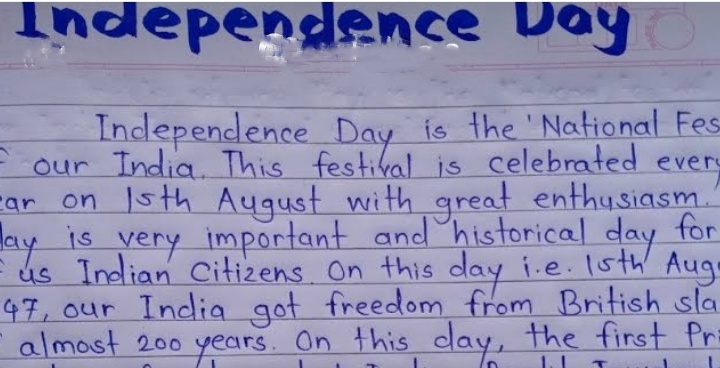 Independence Day
Independence Day is the 'National Fes
our India. This festival is celebrated every
ear on 15th August with great enthusiasm.
day is very important and historical day for
us Indian Citizens. On this day i.e. 15th Aug
47, our India got freedom from British sla
almost 200 years. On this day, the first Pri